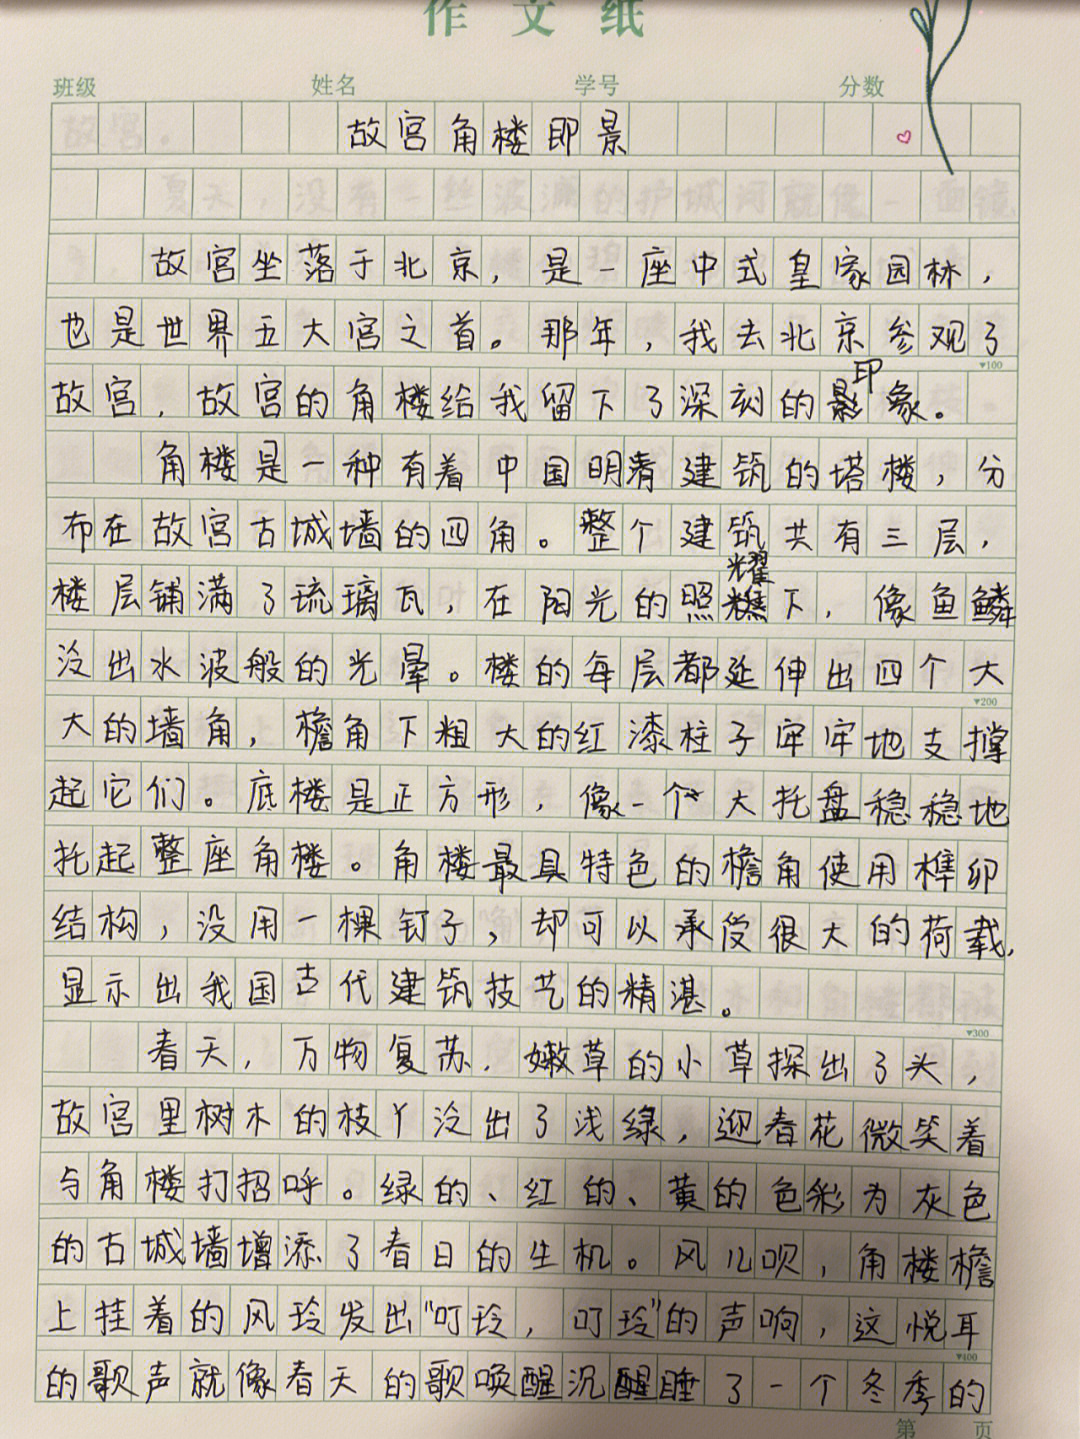 作文纸
班级 姓名 学号 分数
故宫角楼即景
故宫坐落于北京，是一座中式皇家园林，
也是世界五大宫之首。那年，我去北京参观了
▾100
故宫，故宫的角楼给我留下了深刻的印象。
角楼是一种有着中国明清建筑的塔楼，分
布在故宫古城墙的四角。整个建筑共有三层，
楼层铺满了琉璃瓦，在阳光的照耀下，像鱼鳞
泠出水波般的光晕。楼的每层都延伸出四个大
▾200
大的墙角，檐角下粗大的红漆柱子牢牢地支撑
起它们。底楼是正方形，像一个大托盘稳稳地
托起整座角楼。角楼最具特色的檐角使用榫卯
结构，没用一棵钉子，却可以承受很大的荷载，
显示出我国古代建筑技艺的精湛。
▾300
春天，万物复苏，嫩草的小草探出了头，
故宫里树木的枝丫泠出了浅绿，迎春花微笑着
与角楼打招呼。绿的、红的、黄的色彩为灰色
的古城墙增添了春日的生机。风儿呗，角楼檐
上挂着的风玲发出“叮玲，叮玲”的声响，这悦耳
▾400
的歌声就像春天的歌唤醒沉睡了一个冬季的
第 页